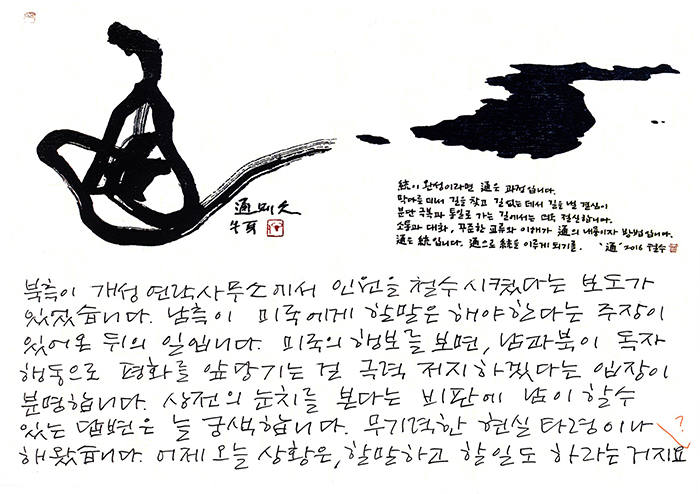 通則久
牛耳
統이 완성이라면 通은 과정입니다.
막다른 데서 길을 찾고 길 없는 데서 길을 낼 결심이
분단 극복과 통일로 가는 길에서는 더욱 절실합니다.
소통과 대화, 꾸준한 교류와 이해가 通의 내용이자 방법입니다.
通은 統입니다. 通으로 統을 이루게 되기를. '通' 2016 철수
북측이 개성 연락사무소에서 인원을 철수시켰다는 보도가
있었습니다. 남측이 미국에게 할말은 해야한다는 주장이
있어온 뒤의 일입니다. 미국의 행보를 보면, 남과북이 독자
행동으로 평화를 앞당기는 걸 극력 저지하겠다는 입장이
분명합니다. 상전의 눈치를 본다는 비판에 남이 할수
있는 답변은 늘 궁색합니다. 무기력한 현실 타령이나
?
해왔습니다. 어제 오늘 상황은, 할말하고 할일도 하라는 거지요